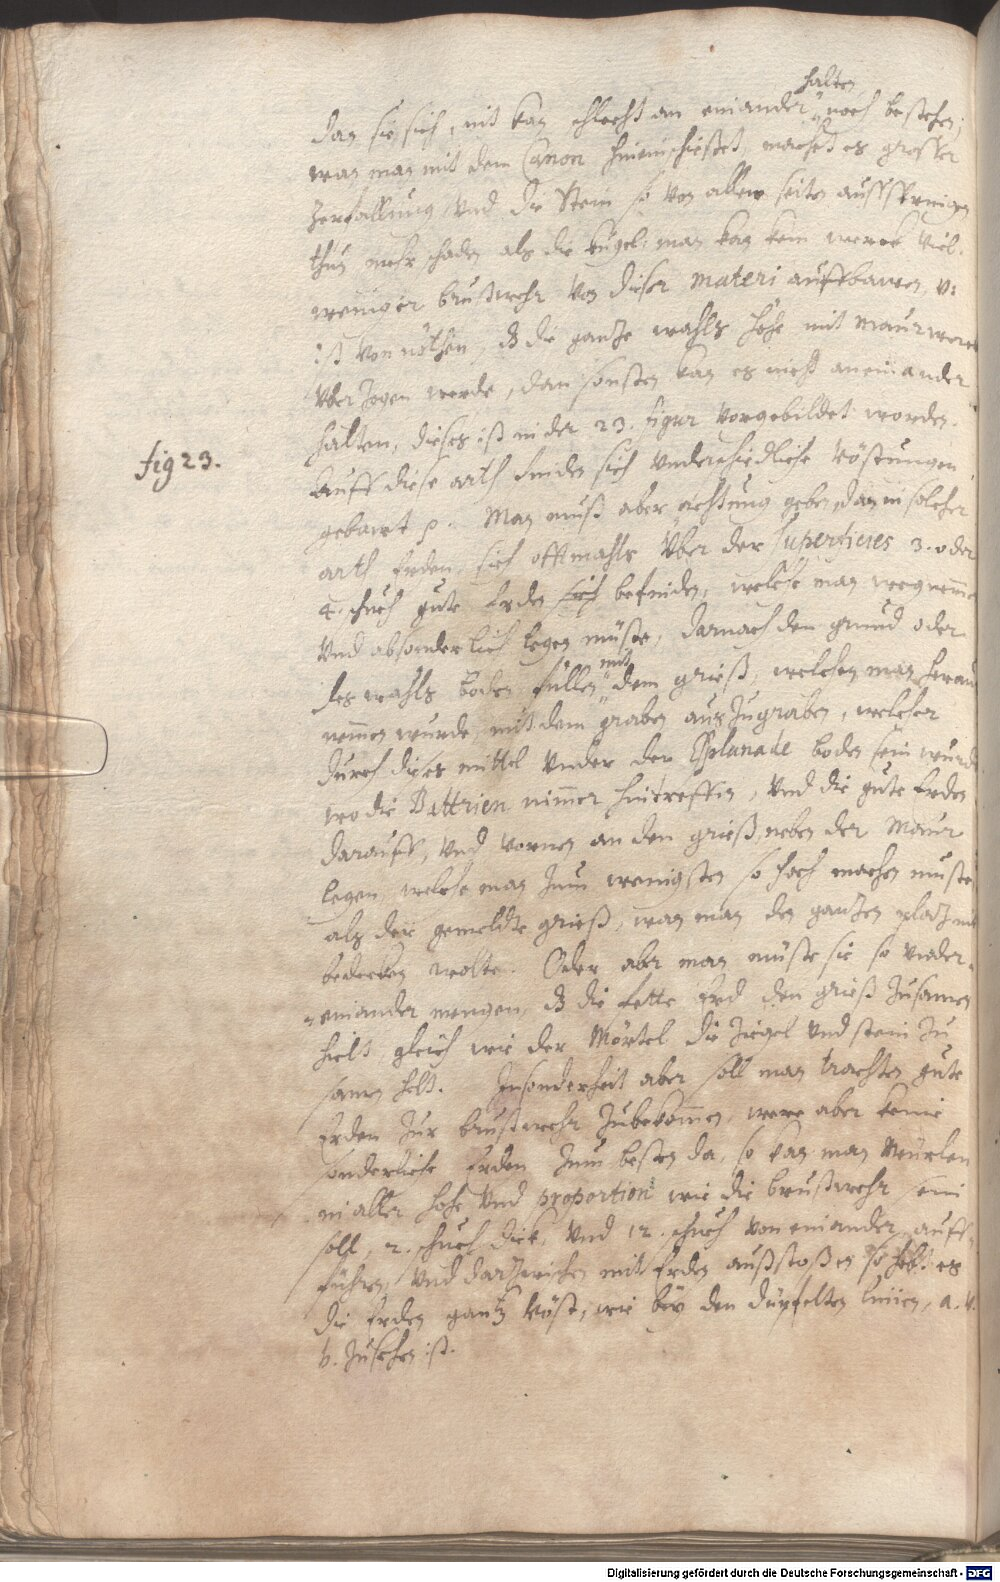 halten
dan sie sich, nit kan schlecht an einander, noch bestehen,
wan man mit dem Canon hineinschiesset, machet es grosse
Zerfallung, Vnd die Stein so von allen seiten auffspringen
thun mehr schaden als die kugel, man kan kein werck viel
weniger brustwehr von dieser materi auffbawen, v:
ist von nöthen, dß die gantze wahls höhe mit Maurwerck
vberzogen werde, dan sonsten kan es nicht aneinander
halten, dieses ist in der 23. figur vorgebildet worden.
fig 23.
Auff diese arth finden sich vnderschiedliche Vöstungen
gebawt p. Man muß aber achtung geben, dan in solcher
arth Erden, sich offtmahls vber der superficies 3. oder
4. schuch gute Erden sich befinden, welche man wegnemme
Vnd absonderlich legen müste, darnach den grund oder
des wahls boden füllen mit dem grieß, welchen man heraus
nemmen wurde, mit dem graben auszugraben, welcher
durch dieses mittel vnder der Esplanade boden sein wurde
wo die Battrien nimmer hintreffen, Vnd die gute Erden
darauff, vnd vornen an den grieß, neben der Maur
legen, welche man zum wenigsten so hoch machen muste
als der gemeldte grieß, wan man den gantzen platz mit
bedecken wolte. Oder aber man müste sie so vnder-
einander mengen, dß die fette Erd den grieß zusamen
hielt, gleich wie der Mörtel die ziegel vnd stein zu
samen helt. Insonderheit aber soll man trachten gute
Erden zur brustwehr zubekommen, were aber keine
sonderliche Erden zum besten da, so kan man Meurlen
in aller höhe vnd proportion wie die brustwehr sein
soll, 2. schuch dick, vnd 12. schuch von einander auff-
führen, vnd darzwischen mit Erden außstoßen so helt es
die Erden gantz vöst, wie bey den düpfelten linien, a. v.
b. zusehen ist.
Digitalisierung gefördert durch die Deutsche Forschungsgemeinschaft - DFG